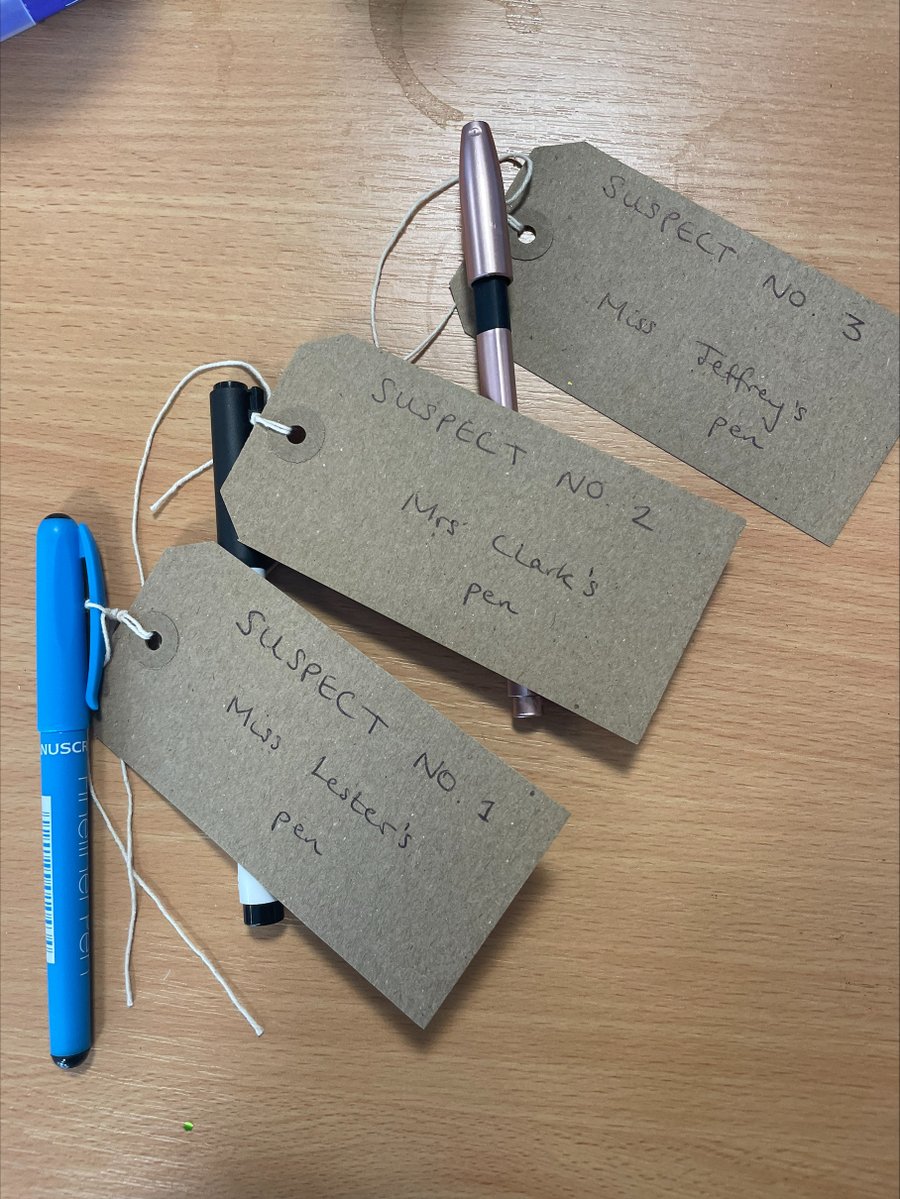 SUSPECT NO. 3
Miss Jeffrey's
pen
SUSPECT NO. 2
Mrs Clark's
pen
SUSPECT NO. 1
Miss Lester's
pen
NUSCR
Fineliner Pen